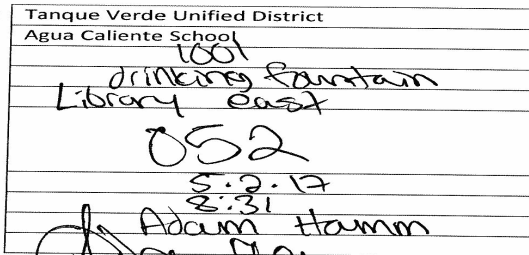 Tanque Verde Unified District
Agua Caliente School
1001
drinking fountain
Library east
052
5.2.17
8:31
Adam Hamm